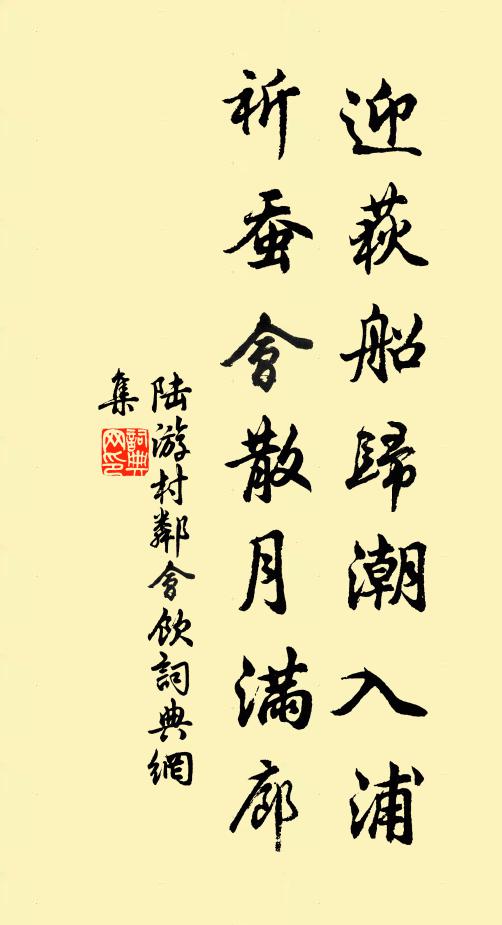 迎荻船歸潮入浦
祈蚕會散月满廊
陆游村鄰會飲詞典網
集
詞典网印